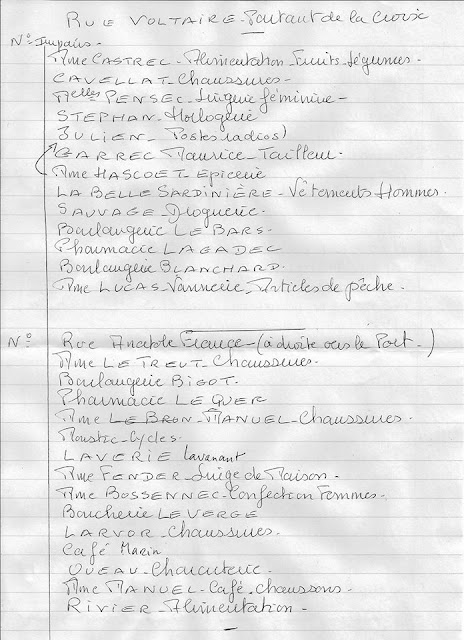 RUE VOLTAIRE - Partant de la Croix
Nos Impairs -
Mme CASTREL - Alimentation - Fruits - Légumes -
CAVELLAT - Chaussures -
Melles PENSEC - Lingerie féminine -
STEPHAN - Horlogerie
JULIEN - Postes (radios)
GARREC Maurice - Tailleur
Mme HASCOET - Epicerie
LA BELLE SARDINIÈRE - Vêtements Hommes.
SAUVAGE - Droguerie.
Boulangerie LE BARS.
Pharmacie LAGADEC
Boulangerie BLANCHARD.
Mme LUCAS - Vannerie - Articles de pêche.
No Rue Anatole France - (à droite vers le Port.)
Mme LE TREUT - Chaussures.
Boulangerie BIGOT.
Pharmacie LE GUER
Mme LE BRUN - MANUEL - Chaussures.
Moustic - Cycles.
LAVERIE Lavanant
Mme FENDER - Linge de Maison.
Mme BOSSENNEC - Confection Femmes.
Boucherie LE VERGE
LARVOR - Chaussures.
Café Marin
QUEAU - Charcuterie.
Mme MANUEL - Café - Chaussons.
RIVIER - Alimentation -